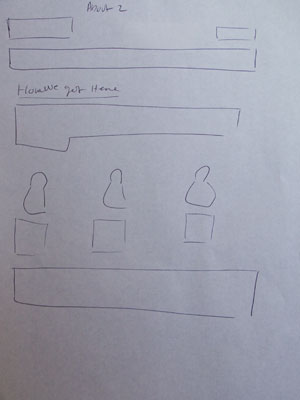 About 2
How We got Here